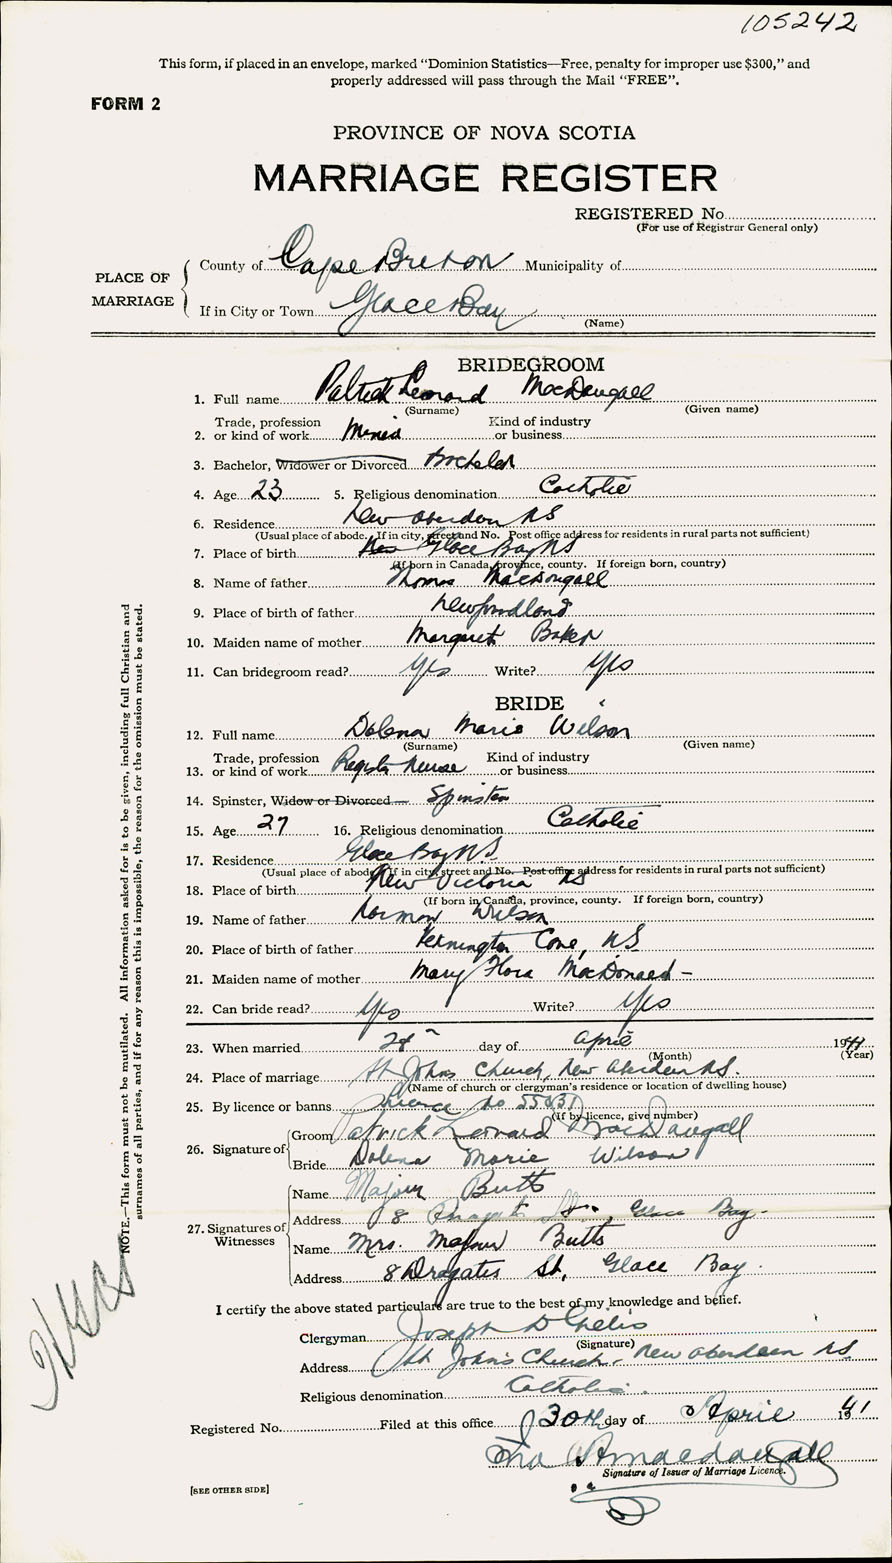 105242
This form, if placed in an envelope, marked "Dominion Statistics—Free, penalty for improper use $300," and
properly addressed will pass through the Mail "FREE".
FORM 2
PROVINCE OF NOVA SCOTIA
MARRIAGE REGISTER
REGISTERED No.
(For use of Registrar General only)
PLACE OF MARRIAGE
County of Cape Breton Municipality of
If in City or Town Glace Bay
(Name)
BRIDEGROOM
1. Full name Patrick Leonard MacDougall
(Surname) (Given name)
2. Trade, profession or kind of work Miner Kind of industry or business
3. Bachelor, Widower or Divorced Bachelor
4. Age 23 5. Religious denomination Catholic
6. Residence New Aberdeen NS
(Usual place of abode. If in city, street and No. Post office address for residents in rural parts not sufficient)
7. Place of birth New Glace Bay NS
(If born in Canada, province, county. If foreign born, country)
8. Name of father Thomas MacDougall
9. Place of birth of father Newfoundland
10. Maiden name of mother Margaret Baker
11. Can bridegroom read? Yes Write? Yes
BRIDE
12. Full name Dolena Marie Wilson
(Surname) (Given name)
13. Trade, profession or kind of work Register Nurse Kind of industry or business
14. Spinster, Widow or Divorced Spinster
15. Age 27 16. Religious denomination Catholic
17. Residence Glace Bay N.S.
(Usual place of abode. If in city, street and No. Post office address for residents in rural parts not sufficient)
18. Place of birth New Victoria NS
(If born in Canada, province, county. If foreign born, country)
19. Name of father Norman Wilson
20. Place of birth of father Kennington Cove, NS
21. Maiden name of mother Mary Flora MacDonald -
22. Can bride read? Yes Write? Yes
23. When married 28 day of April 1941
(Month) (Year)
24. Place of marriage St Johns Church, New Aberdeen NS.
(Name of church or clergyman's residence or location of dwelling house)
25. By licence or banns Licence No
(If by licence, give number)
26. Signature of
Groom Patrick Leonard MacDougall
Bride Dolena Marie Wilson
27. Signatures of Witnesses
Name Majour Butts
Address 8 St., Glace Bay.
Name Mrs. Majour Butts
Address 8 St, Glace Bay.
I certify the above stated particulars are true to the best of my knowledge and belief.
Clergyman Joseph D
(Signature)
Address St John's Church, New Aberdeen NS
Religious denomination Catholic.
Registered No. Filed at this office 30th day of April 1941
Macdougall
Signature of Issuer of Marriage Licence.
[SEE OTHER SIDE]
NOTE.—This form must not be mutilated. All information asked for is to be given, including full Christian and
surnames of all parties, and if for any reason this is impossible, the reason for the omission must be stated.